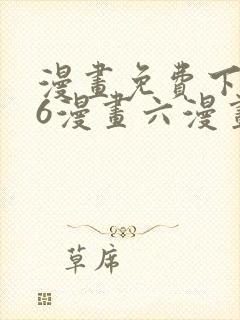 漫畫免費下
6漫畫六漫畫
草席